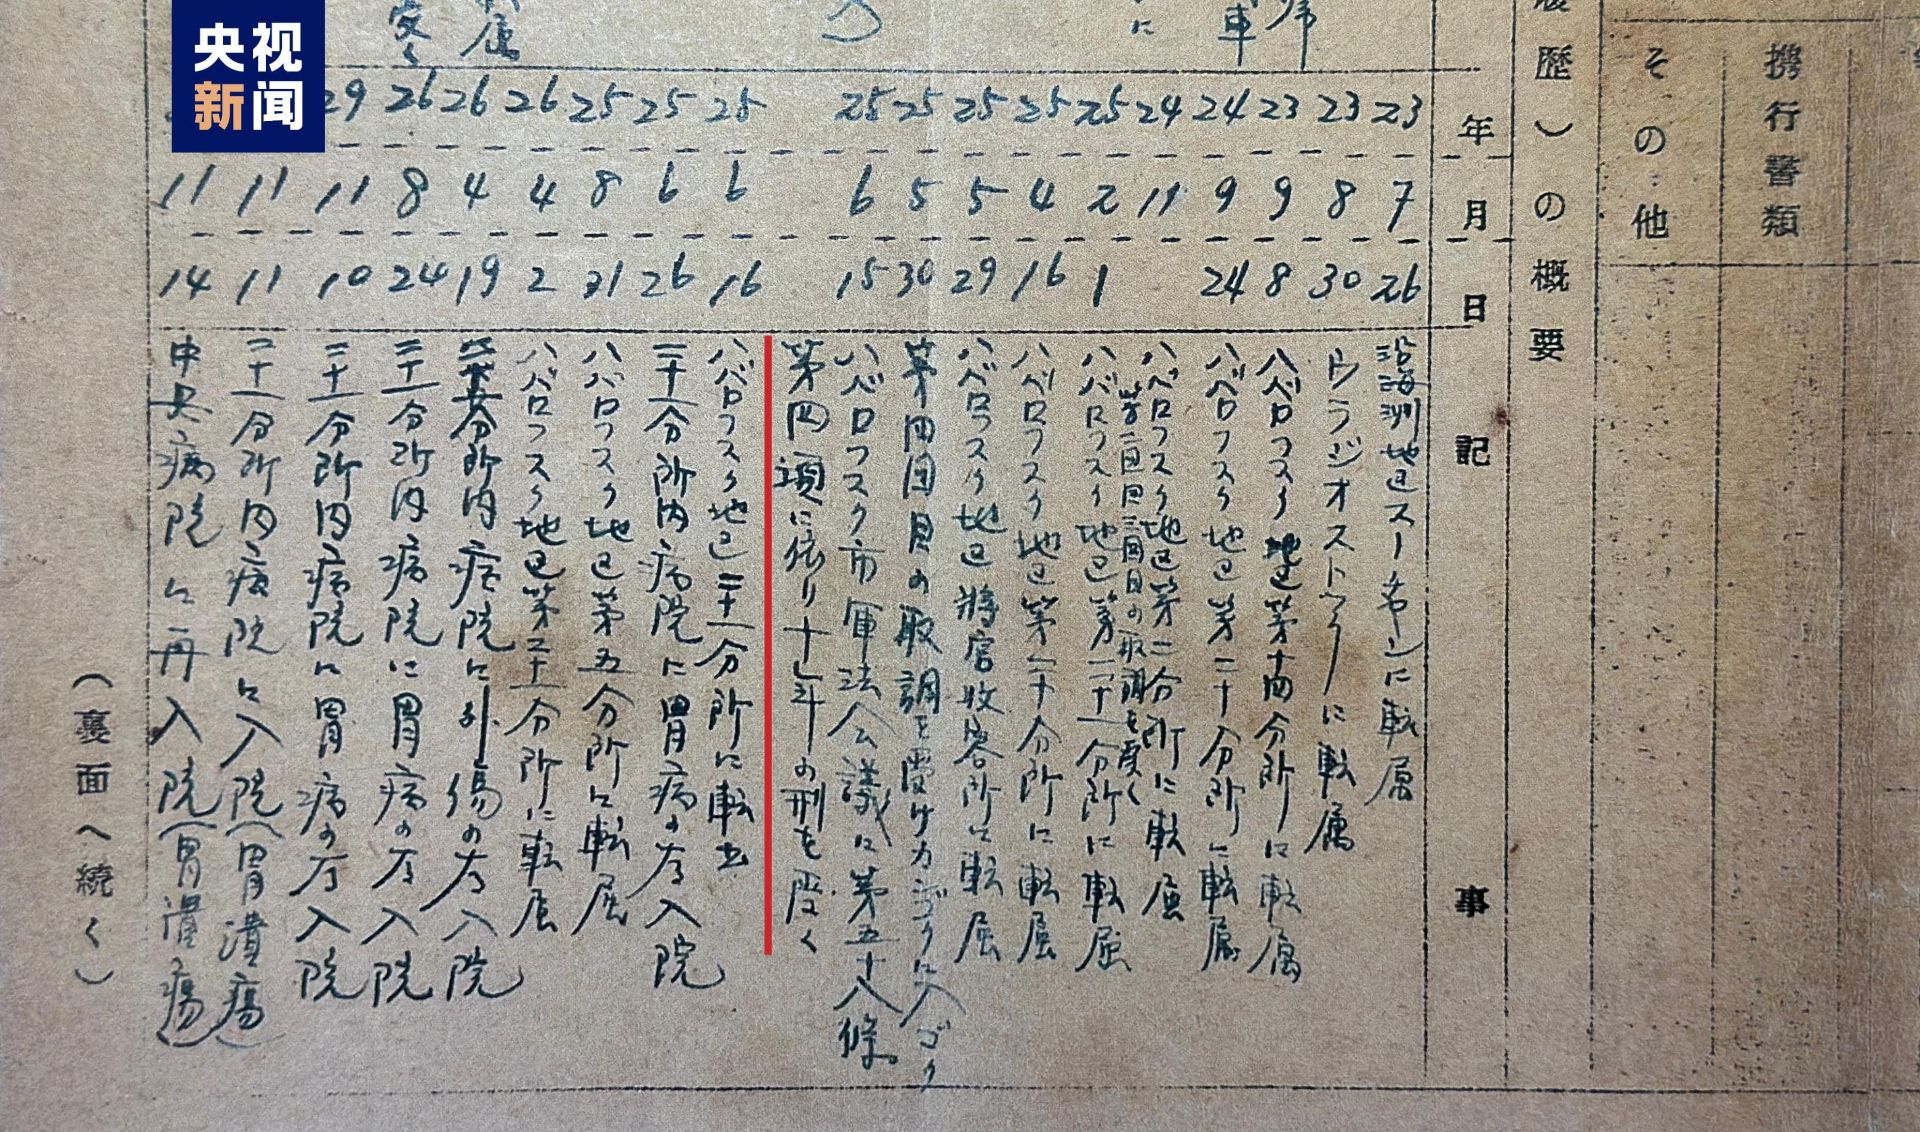 央视
新闻
携行書類
その他
歴)の概要
年
月
日
記事
23 7 26 沿海洲地区スーチヤンに転属
23 8 30 ウラジオストックに転属
23 9 8 ハバロフスク地区第十四分所に転属
24 9 24 ハバロフスク地区第二十分所に転属
24 11 ハバロフスク地区第二分所に転属
第二回目三回目の取調を受く
25 2 1 ハバロフスク地区第二十一分所に転属
25 4 16 ハバロフスク地区第二十分所に転属
25 5 29 ハバロフスク地区将官收容所に転属
25 5 30 第四回目の取調を受け入ゴク
25 6 15 ハバロフスク市軍法会議に第五十八條
第四項に依り十七年の刑を受く
25 6 16 ハバロフスク地区二十一分所に転出
25 6 26 二十一分所内病院に胃病の為入院
25 8 31 ハバロフスク地区第五分所に転属
26 4 2 ハバロフスク地区第二十一分所に転属
26 4 19 分所内病院に外傷の為入院
26 8 24 二十一分所内病院に胃病の為入院
29 11 10 二十一分所内病院に胃病の為入院
11 11 二十一分所内病院に入院(胃潰瘍)
11 14 中央病院に再入院(胃潰瘍)
(裏面へ続く)